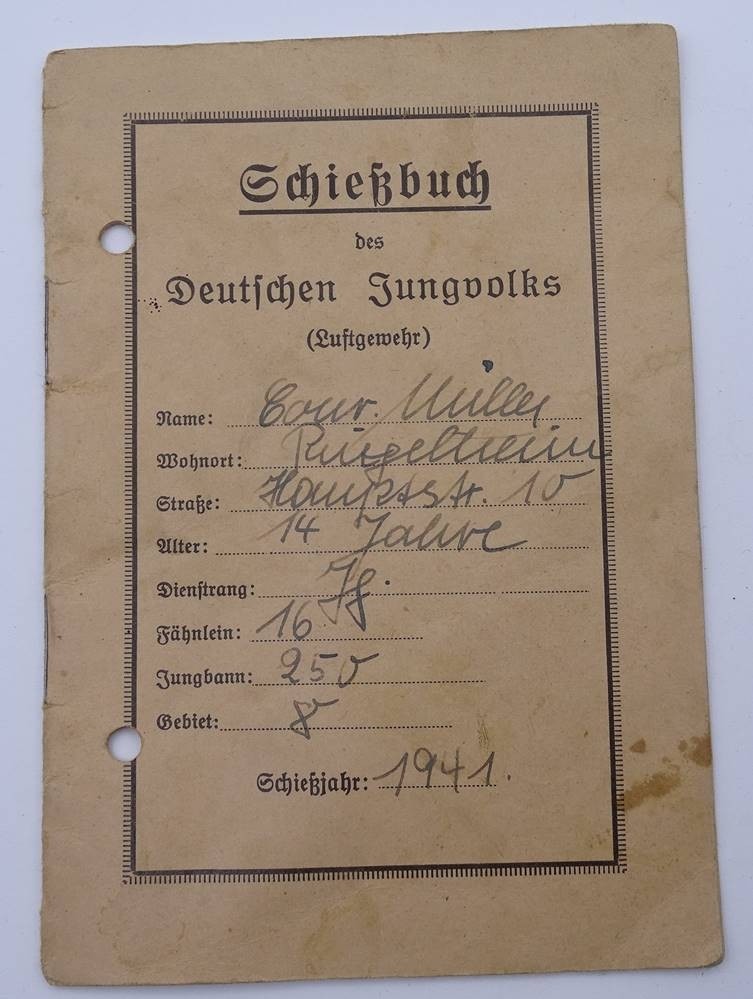 Schießbuch
des
Deutschen Jungvolks
(Luftgewehr)
Name: Conr. Müller
Wohnort: Ringelheim
Straße: Hauptstr. 10
Alter: 14 Jahre
Dienstrang: Jg.
Fähnlein: 16
Jungbann: 250
Gebiet: 8
Schießjahr: 1941.